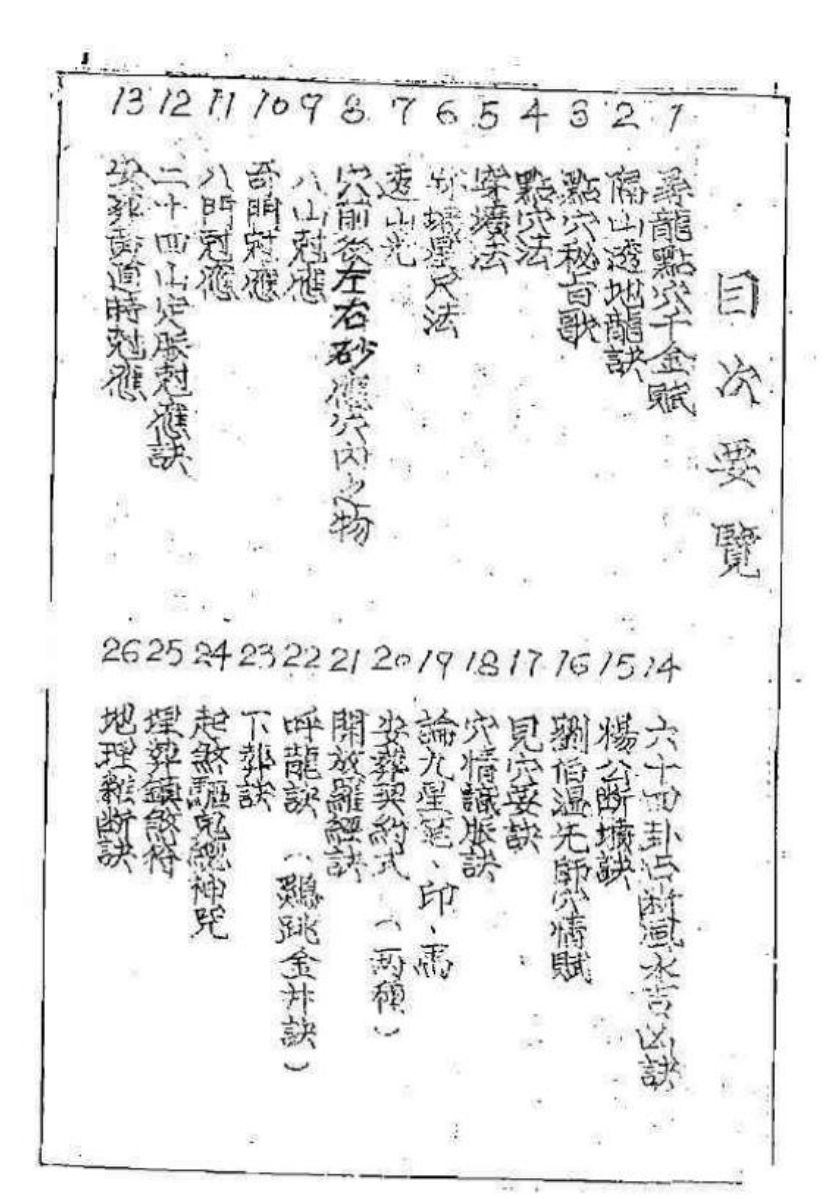 目次要覽
1 尋龍點穴千金賦
2 隔山透地龍訣
3 點穴秘旨歌
4 點穴法
5 穿壙法
6 墳星尺法
7 透山光
8 穴前後左右砂應穴內之物
9 八山尅應
10 奇門尅應
11 八門尅應
12 二十四山定脈尅應訣
13 安葬黃道時尅應
14 六十四卦占斷風水吉凶訣
15 楊公斷墳訣
16 劉伯溫先師穴情賦
17 見穴妥訣
18 穴情識脈訣
19 論九星、印、
20 安葬契約式(兩種)
21 開放羅經訣
22 呼龍訣(鷄跳金井訣)
23 下葬訣
24 起煞驅鬼總神咒
25 埋葬鎮煞符
26 地理雜斷訣